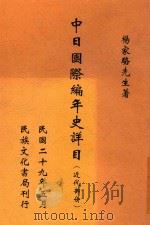 楊家駱先生著
中日國際編年史詳目(近代部份)
民國二十九年三月
民族文化書局刊行